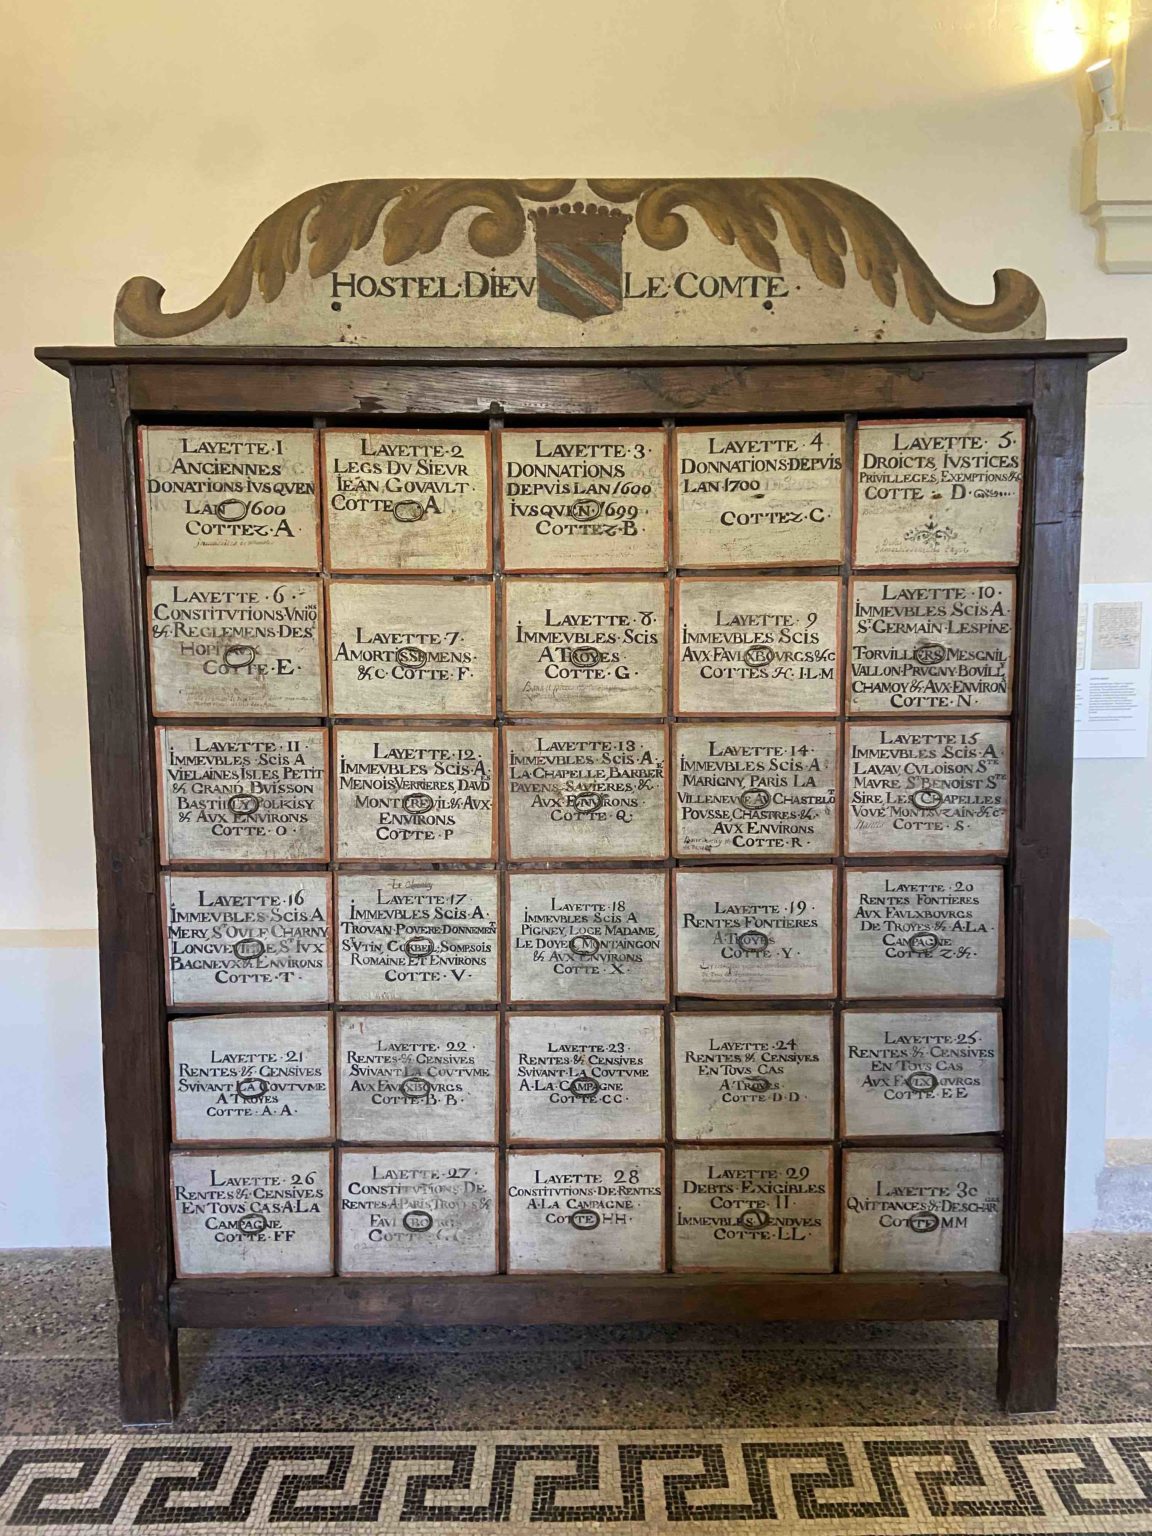 HOSTEL·DIEV LE·COMTE·
LAYETTE·1
ANCIENNES
DONATIONS·IVSQVEN
LAN 1600
COTTEZ·A·
LAYETTE·2
LEGS DV SIEVR
IEAN GOVAVLT·
COTTE A
LAYETTE·3·
DONNATIONS
DEPVIS LAN 1600
IVSQVEN 1699
COTTEZ·B
LAYETTE·4
DONNATIONS·DEPVIS
LAN 1700
COTTEZ·C·
LAYETTE·5·
DROICTS, IVSTICES
PRIVILLEGES, EXEMPTIONS &c
COTTE·D·
LAYETTE·6·
CONSTITVTIONS·VNIONS
&·REGLEMENS·DES
HOPITAUX
COTTE·E·
LAYETTE·7·
AMORTISSEMENS·
&c·COTTE·F·
LAYETTE·8
IMMEVBLES·SCIS
A TROYES
COTTE·G·
LAYETTE·9
IMMEVBLES SCIS
AVX·FAVLXBOVRGS·&c
COTTES H·I·L·M
LAYETTE·10·
IMMEVBLES SCIS A·
ST·GERMAIN·LESPINE·
TORVILLIERS MESGNIL
VALLON·PRVGNY·BOVILLT
CHAMOY & AVX·ENVIRON
COTTE·N·
LAYETTE·11·
IMMEVBLES SCIS A
VIELAINES ISLES PETIT
& GRAND BVISSON
BASTILLY POLIKISY
& AVX ENVIRONS
COTTE·O·
LAYETTE·12·
IMMEVBLES SCIS·A·
MENOIS VERRIERES DAVDES
MONTREVIL & AVX·
ENVIRONS
COTTE·P
LAYETTE·13·
IMMEVBLES·SCIS·A
LA·CHAPELLE, BARBEREY
PAYENS, SAVIERES, &·
AVX·ENVIRONS·
COTTE·Q·
LAYETTE·14·
IMMEVBLES SCIS·A
MARIGNY, PARIS LA
VILLENEVVE AV CHASTELOT
POVSSE, CHASTRES·&·
AVX ENVIRONS
COTTE·R·
LAYETTE 15
IMMEVBLES SCIS·A
LAVAV CVLOISON STE
MAVRE ST BENOIST STE
SIRE LES CHAPELLES
VOVE MONTSVZAIN·&c·
COTTE·S·
LAYETTE·16
IMMEVBLES·SCIS A
MERY, ST OVLF CHARNY
ST IVX
BAGNEVX & ENVIRONS
COTTE·T·
LAYETTE·17
IMMEVBLES·SCIS·A·
TROVAN·POVERE·DONNEMENT
ST VTIN CORBEIL·SOMPSOIS
ROMAINE ET ENVIRONS
COTTE·V·
LAYETTE·18
IMMEVBLES·SCIS A
PIGNEY, LOGE MADAME,
LE DOYER, MONTAINGON
& AVX ENVIRONS
COTTE·X·
LAYETTE·19·
RENTES FONTIERES
A TROYES
COTTE·Y·
LAYETTE·20
RENTES FONTIERES
AVX FAVLXBOVRGS
DE TROYES & A·LA·
CAMPAGNE
COTTE·Z·&·
LAYETTE·21
RENTES·&·CENSIVES
SVIVANT·LA COVTVME
A TROYES
COTTE·A·A·
LAYETTE·22
RENTES·&·CENSIVES
SVIVANT·LA COVTVME
AVX FAVLXBOVRGS
COTTE·B·B·
LAYETTE·23·
RENTES·&·CENSIVES
SVIVANT·LA COVTVME
A·LA·CAMPAGNE
COTTE·CC·
LAYETTE·24
RENTES & CENSIVES
EN TOVS CAS
A TROYES·
COTTE·D·D
LAYETTE·25·
RENTES & CENSIVES
EN TOVS CAS
AVX FAVLXBOVRGS
COTTE·EE
LAYETTE·26
RENTES & CENSIVES
EN TOVS CAS·A·LA
CAMPAGNE
COTTE·FF
LAYETTE·27·
CONSTITVTIONS DE
RENTES·A PARIS TROYES &
LAYETTE·28
CONSTITVTIONS·DE·RENTES
A·LA CAMPAGNE·
COTTE·HH·
LAYETTE·29
DEBTS·EXIGIBLES
COTTE·II·
IMMEVBLES·VENDVES
COTTE·LL·
LAYETTE 30
QVITTANCES & DESCHAR
COTTE·MM